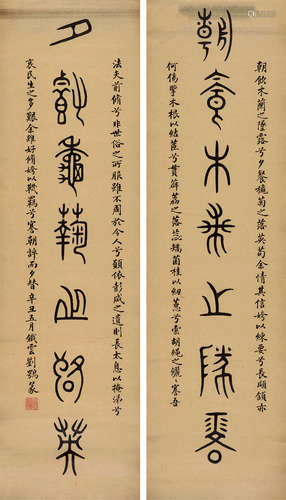 朝飲木蘭之墜露
朝飲木蘭之墜露兮夕餐穐菊之落英苟余情其信姱以練要兮長顑頷亦
何傷擥木根以結茝兮貫薜荔之落蕊矯菌桂以紉蕙兮索胡繩之纚〻謇吾
夕餐秋菊之落英
法夫前脩兮非世俗之所服雖不周於今人兮願依彭咸之遺則長太息以掩涕兮
哀民生之多艱余雖好脩姱以鞿羈兮謇朝誶而夕替辛丑五月鐵雲劉鶚篆